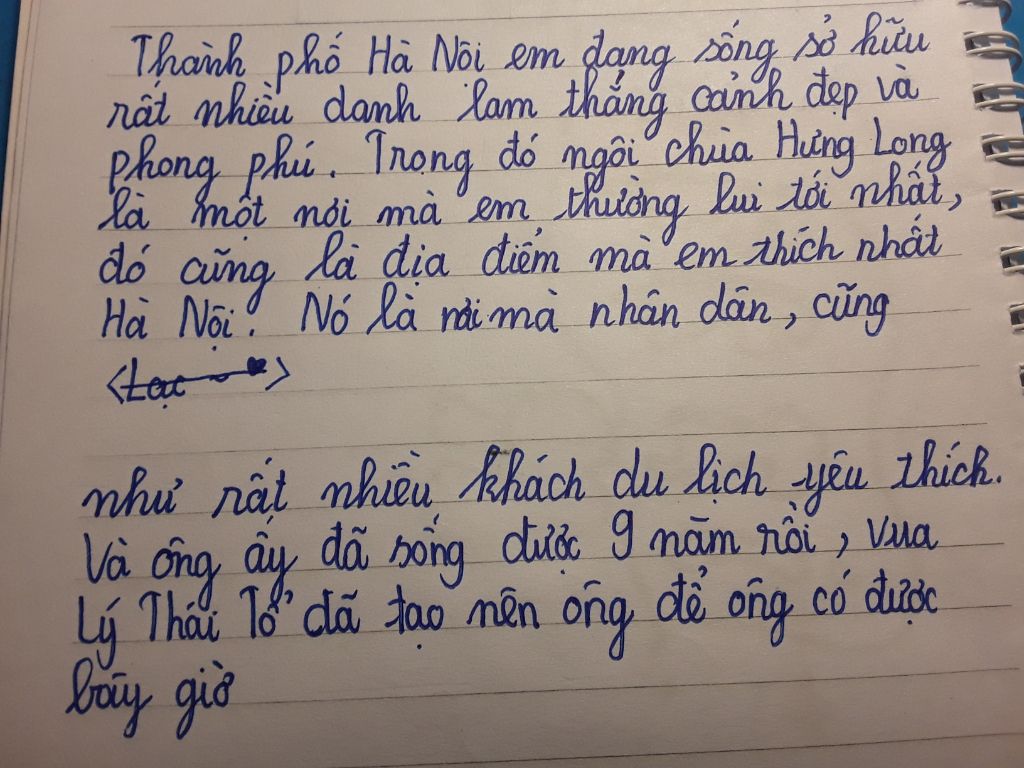 Thành phố Hà Nôi em đang sống sở hữu
rất nhiều danh lam thắng cảnh đẹp và
phong phú. Trong đó ngôi chùa Hưng Long
là một nơi mà em thường lui tới nhất,
đó cũng là địa điểm mà em thích nhất
Hà Nội. Nó là nơi mà nhân dân, cũng
<Lạc>
như rất nhiều khách du lịch yêu thích.
Và ông ấy đã sống được 9 năm rồi, vua
Lý Thái Tổ đã tạo nên ông để ông có được
bây giờ